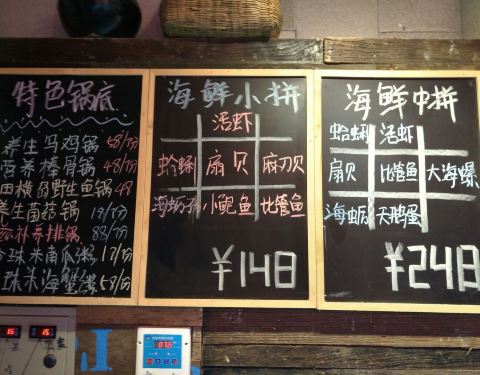 特色锅底
养生乌鸡锅 58/份
营养棒骨锅 48/份
田横岛野生鱼锅 48
养生菌菇锅 18/份
滋补养排锅 88/份
珍珠米南瓜粥 18/份
珠米海蟹粥 58/份
海鲜小拼
活虾
蛤蜊 扇贝 麻刀贝
海蛎子 小鲍鱼 比管鱼
¥148
海鲜中拼
蛤蜊 活虾
扇贝 比管鱼 大海螺
海蛎 天鹅蛋
¥248